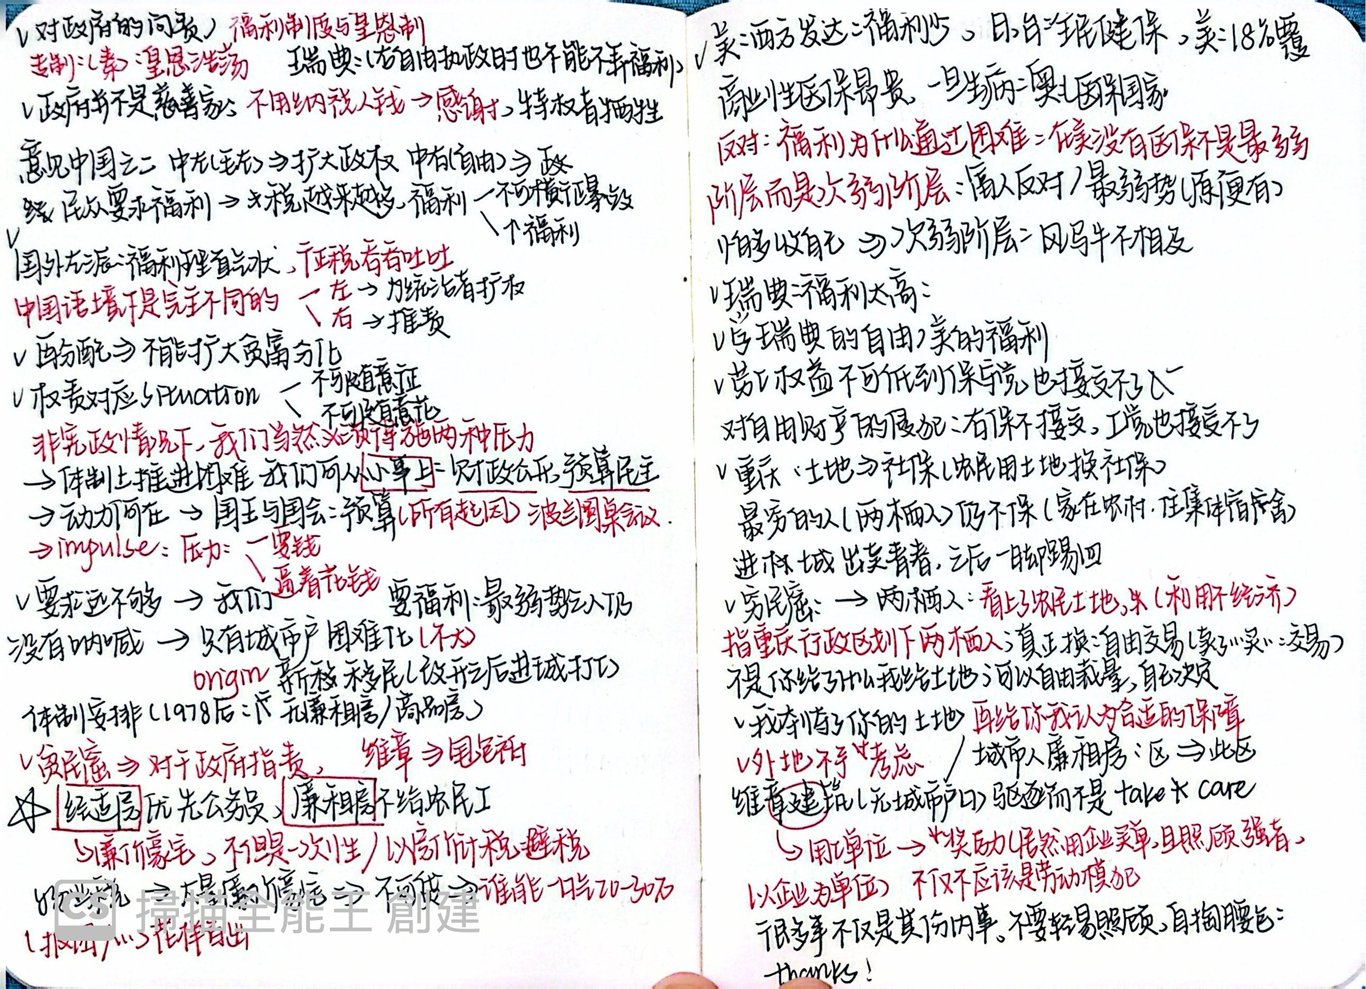 √对政府的问责） 福利制度与皇恩制
专制：(秦)：皇恩浩荡 瑞典：(右自由执政时也不能不新福利)
√政府并不是慈善家： 不用纳税人钱→感谢，特权者牺牲
意见中国之二 中左(毛左)⇒扩大政权 中右(自由)⇒政
民众要求福利→税越来越多，福利 不可横征暴敛
↑福利
√国外左派：福利理直气状，征税吞吞吐吐
中国语境下是完全不同的 左→为统治者扩权
右→推责
√再分配⇒不能扩大贫富分化
√权责对应situation 不可随意征
不可没有意花
非宪政情况下，我们当然必须传施两种压力
→体制上推进困难 我们可从小事上：财政公开，预算民主
→动力何在→国王与国会：预算(所有起因) 波兰圆桌会议.
→impulse：压力： 要钱
逼着花钱
√要求还不够→我们 要福利：最弱势之人仍
没有呐喊→只有城市户困难化(不大)
origin 新移移民(改开之后进城打工)
体制安排(1978后：无廉租房/高品房)
√贫民窟⇒对于政府指责， 维章⇒
☆经适房优先公务员，廉租房不给农民工
↳廉价豪宅，不但是一次性/以高价计税：避税
→是廉价豪宅⇒不可被⇒谁能一口气20-30万
√美：西方发达：福利少，日、台：全民健保，美：18%覆
商业性医保昂贵，一旦生病：奥巴医保国家
反对：福利为什么通过困难：在美没有医保不是最弱
阶层而是次弱阶层：富人反对/最弱势(原便有)
怕多收自己⇒次弱阶层：风马牛不相及
√瑞典：福利太高：
√与瑞典的自由，美的福利
√劳工权益不可低到保守党也接受不了
对自由竞争的侵犯：右保不接受，工党也接受不了
√重庆：土地⇒社保(农民用土地换社保)
最穷的人(两栖人)仍不保(家在农村，住集体宿宿舍)
进城出卖青春，之后一脚踢回
√贫民窟：→两栖人：看上了农民土地，(利用不经济)
指重庆行政区划下两栖人；真正换：自由交易(卖了"买"：交易)
不是你给了什么我给土地；可以自由裁量，自己决定
√我剥夺了你的土地 再给你我认为合适的保障
√外地不予"考虑 / 城市人廉租房：区⇒此区
维章建筑(无城市户口)驱逐而不是take care
↳用工单位→"奖励(居然用企业买单，且照顾强者，
以企业为单位) 不仅不应该是劳动模范
很多事不仅是其份内事。不要轻易照顾，自掏腰包：
thanks!
CS 掃描全能王 創建